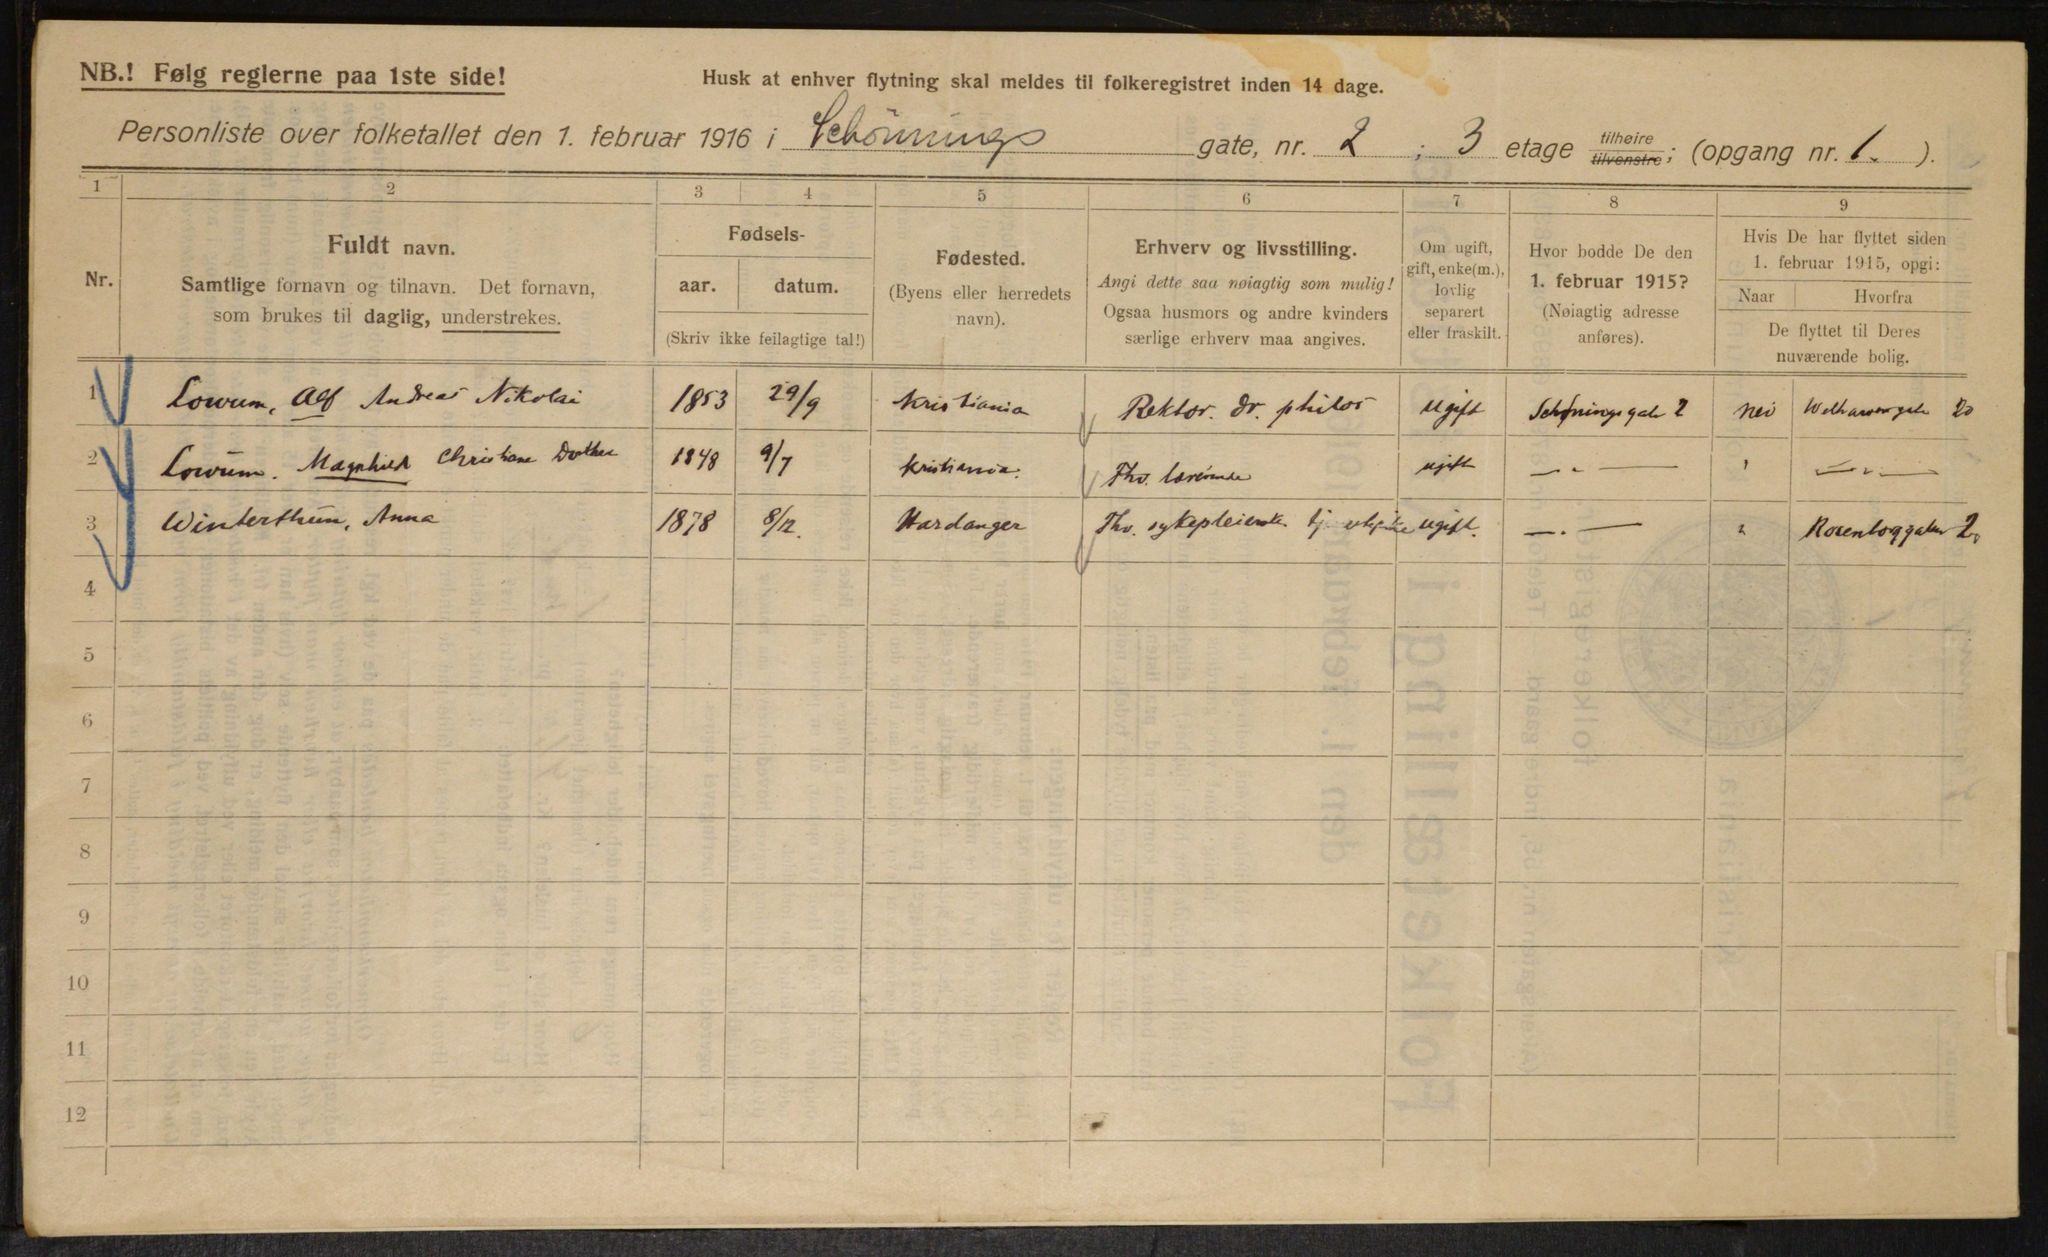 NB.! Følg reglerne paa 1ste side!
Husk at enhver flytning skal meldes til folkeregistret inden 14 dage.
Personliste over folketallet den 1. februar 1916 i Schønnings gate, nr. 2 ; 3 etage tilheire tilvenstre; (opgang nr. 1. ).
1 2 3 4 5 6 7 8 9
Nr.
Fuldt navn.
Samtlige fornavn og tilnavn. Det fornavn,
som brukes til daglig, understrekes.
Fødsels-
aar. datum.
(Skriv ikke feilagtige tal!)
Fødested.
(Byens eller herredets
navn).
Erhverv og livsstilling.
Angi dette saa nøiagtig som mulig!
Ogsaa husmors og andre kvinders
særlige erhverv maa angives.
Om ugift,
gift, enke(m.),
lovlig
separert
eller fraskilt.
Hvor bodde De den
1. februar 1915?
(Nøiagtig adresse
anføres).
Hvis De har flyttet siden
1. februar 1915, opgi:
Naar Hvorfra
De flyttet til Deres
nuværende bolig.
1 Lowum, Alf Andreas Nikolai 1853 29/9 Kristiania Rektor. dr. philos ugift Schøningsgate 2 nei 20
2 Lowum. Magnhild Christiane Dorthea 1848 9/7 Kristiania. Fhv. lærerinde ugift — " — — " —
3 Winterthun, Anna 1878 8/12. Hardanger Fhv. sykepleierske ugift. — " —
4
5
6
7
8
9
10
11
12